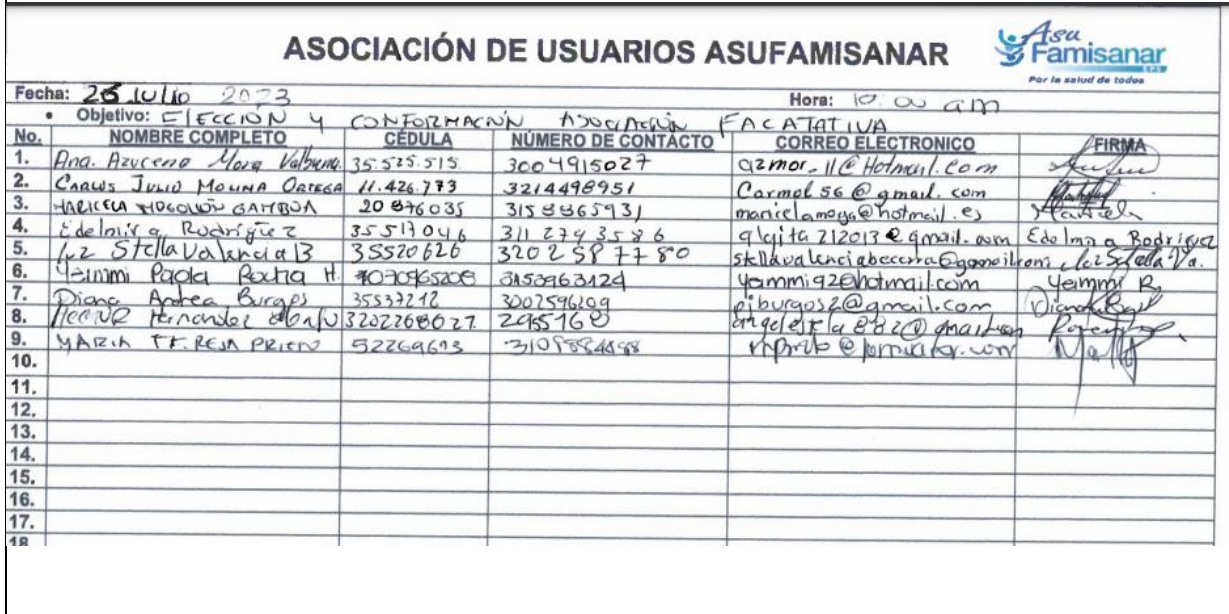 ASOCIACIÓN DE USUARIOS ASUFAMISANAR
Asu
Famisanar
EPS
Por la salud de todos
Fecha: 26 Julio 2023 Hora: 10:00 am
• Objetivo: ELECCIÓN Y CONFORMACIÓN ASOCIACIÓN FACATATIVA
No. NOMBRE COMPLETO CÉDULA NÚMERO DE CONTACTO CORREO ELECTRONICO FIRMA
1. Ana. Azucena Mora Valbuena. 35.525.515 3004915027 azmor_11@Hotmail.com
2. CARLOS JULIO MOLINA ORTEGA 11.426.773 3214498951 Carmol56@gmail.com
3. MARICELA MOGOLLÓN GAMBOA 20876035 3158865931 maricelamoga@hotmail.es Maricela
4. Edelmira Rodríguez 35517046 3112793586 212013@gmail.com Edelmira Rodriguez
5. Luz Stella Valencia B 35520626 3202587780 stellavalenciabecerra@gmail.com Luz Stella Va.
6. Yeimmi Paola Rocha H. 1070965208 3153963124 yeimmi92@hotmail.com Yeimmi R.
7. Diana Andrea Burgos 35537212 3002596209 piburgos2@gmail.com
8. Hernandez 3202268627 2955168
9. MARIA TERESA PRIETO 52269673
10.
11.
12.
13.
14.
15.
16.
17.
18